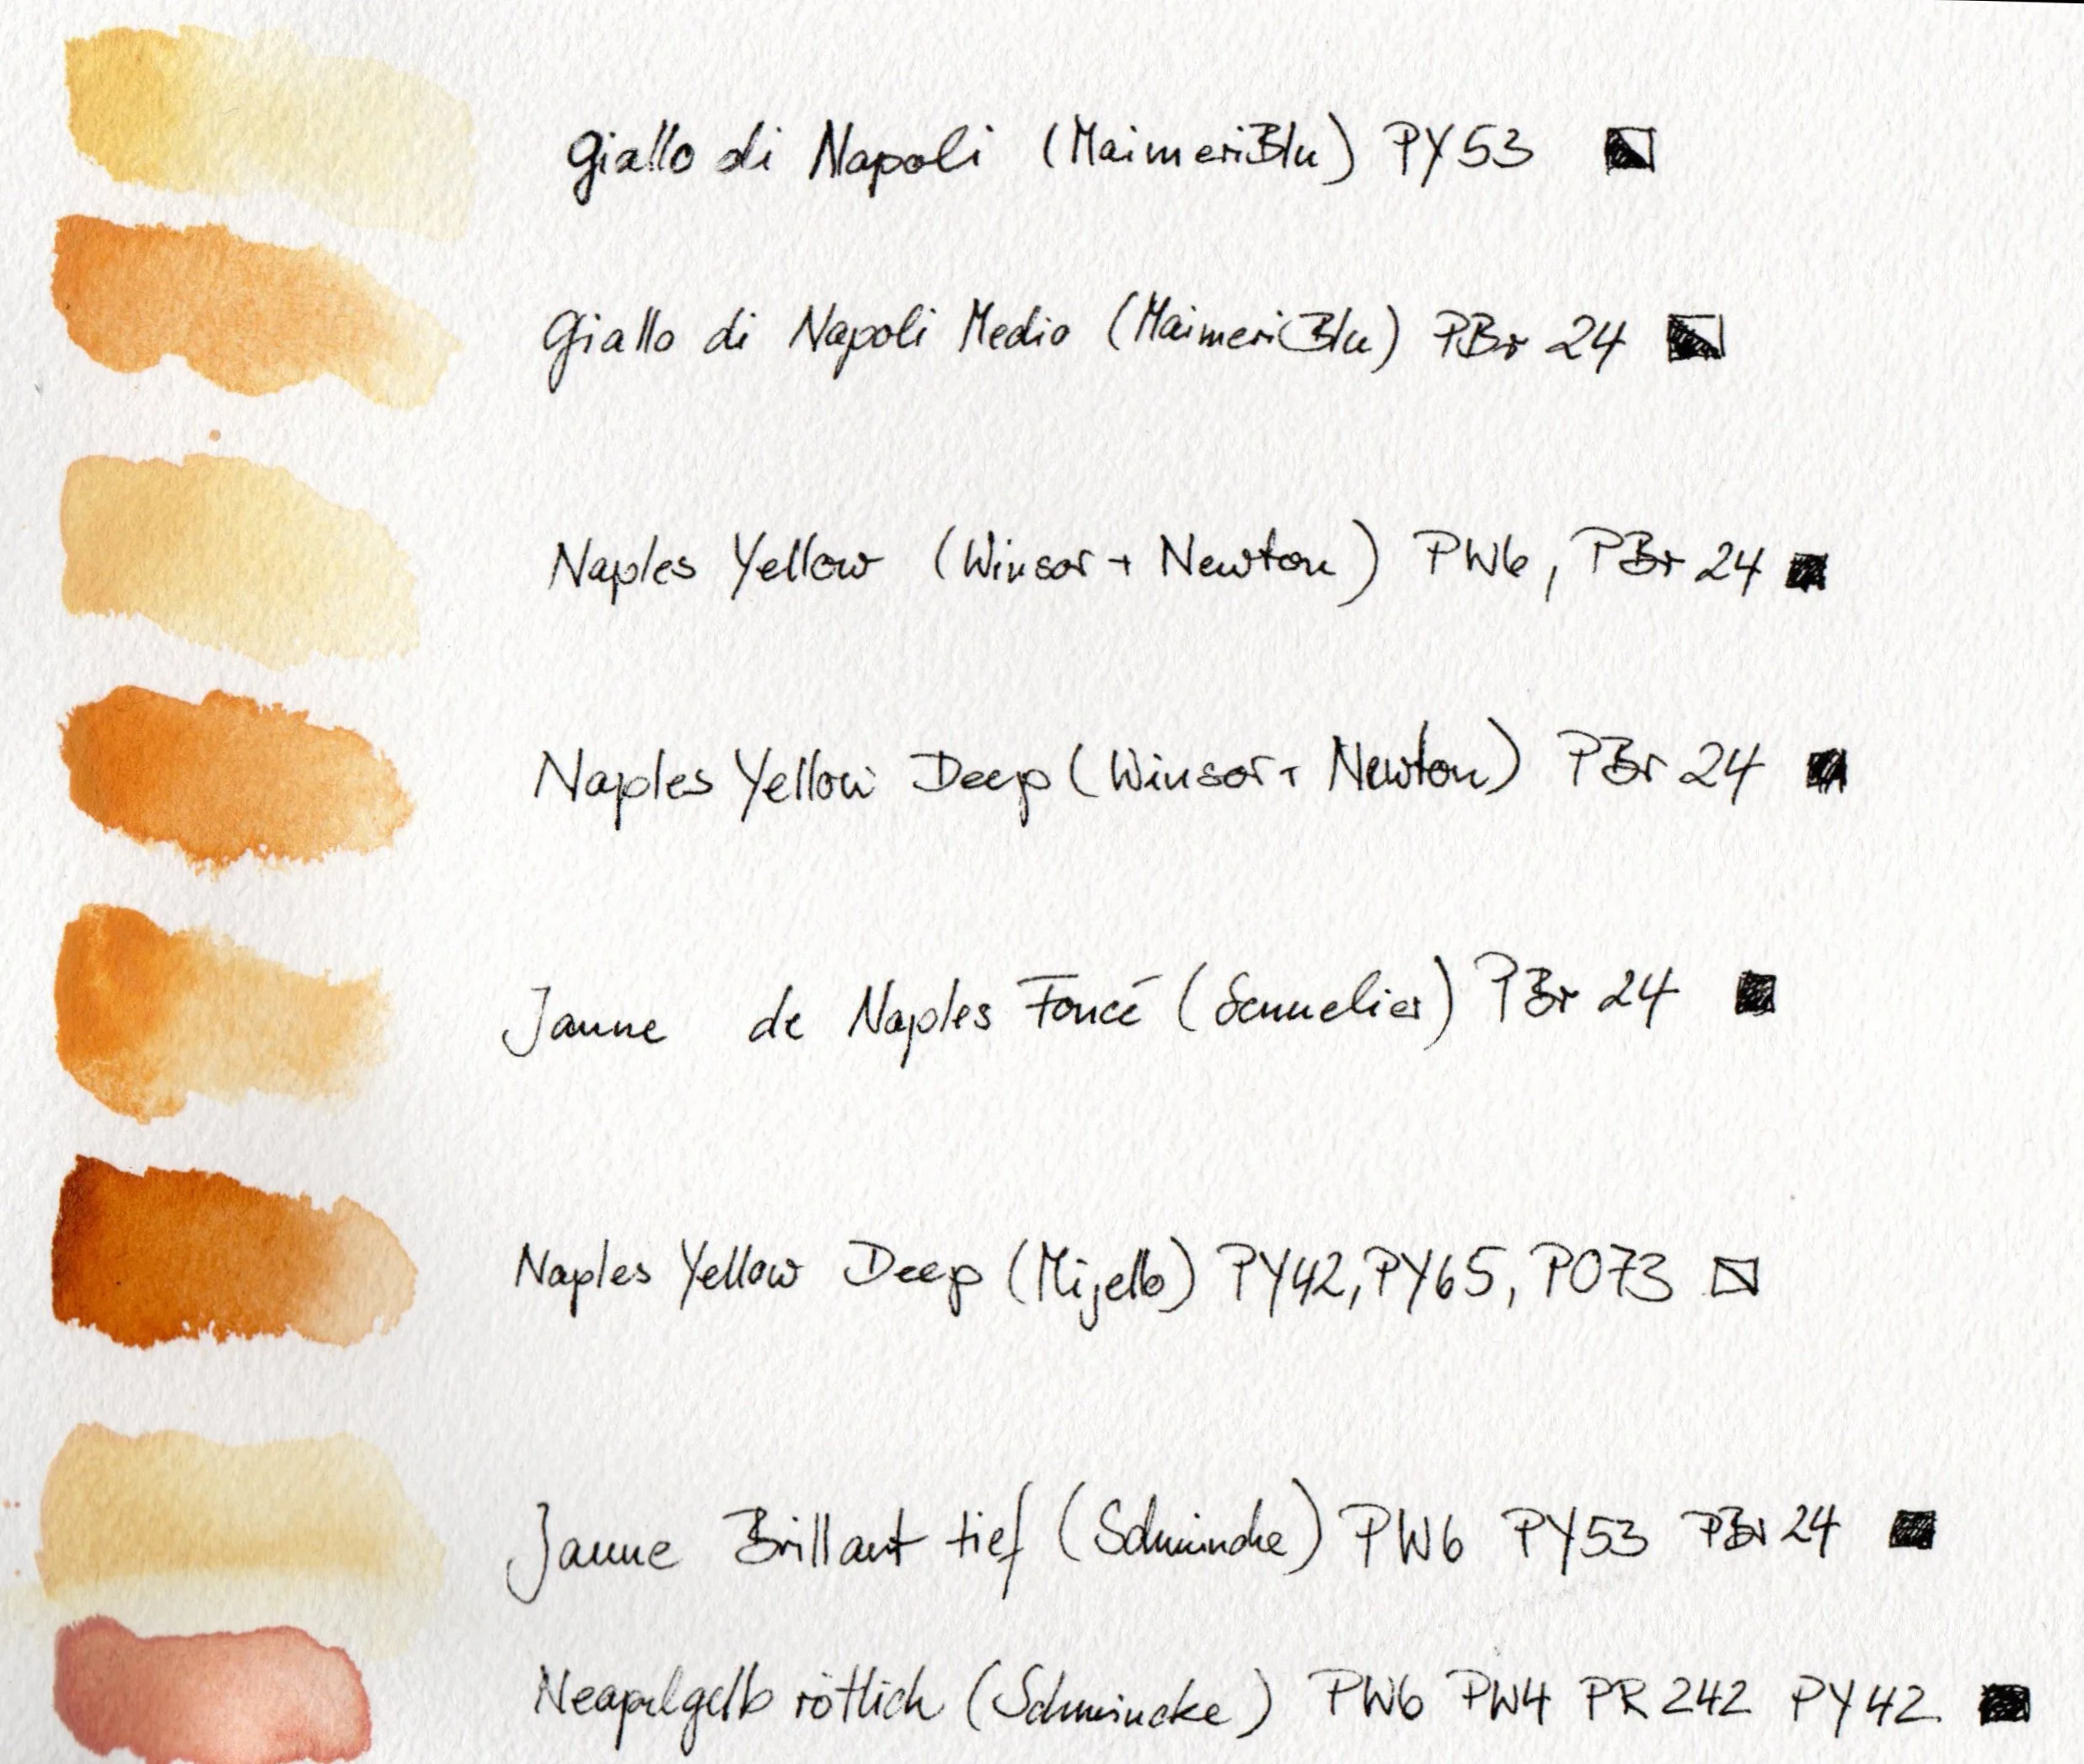 Giallo di Napoli (MaimeriBlu) PY53
Giallo di Napoli Medio (MaimeriBlu) PBr 24
Naples Yellow (Winsor + Newton) PW6, PBr 24
Naples Yellow Deep (Winsor + Newton) PBr 24
Jaune de Naples Foncé (Sennelier) PBr 24
Naples Yellow Deep (Mijello) PY42, PY65, PO73
Jaune Brillant tief (Schmincke) PW6 PY53 PBr 24
Neapelgelb rötlich (Schmincke) PW6 PW4 PR 242 PY 42